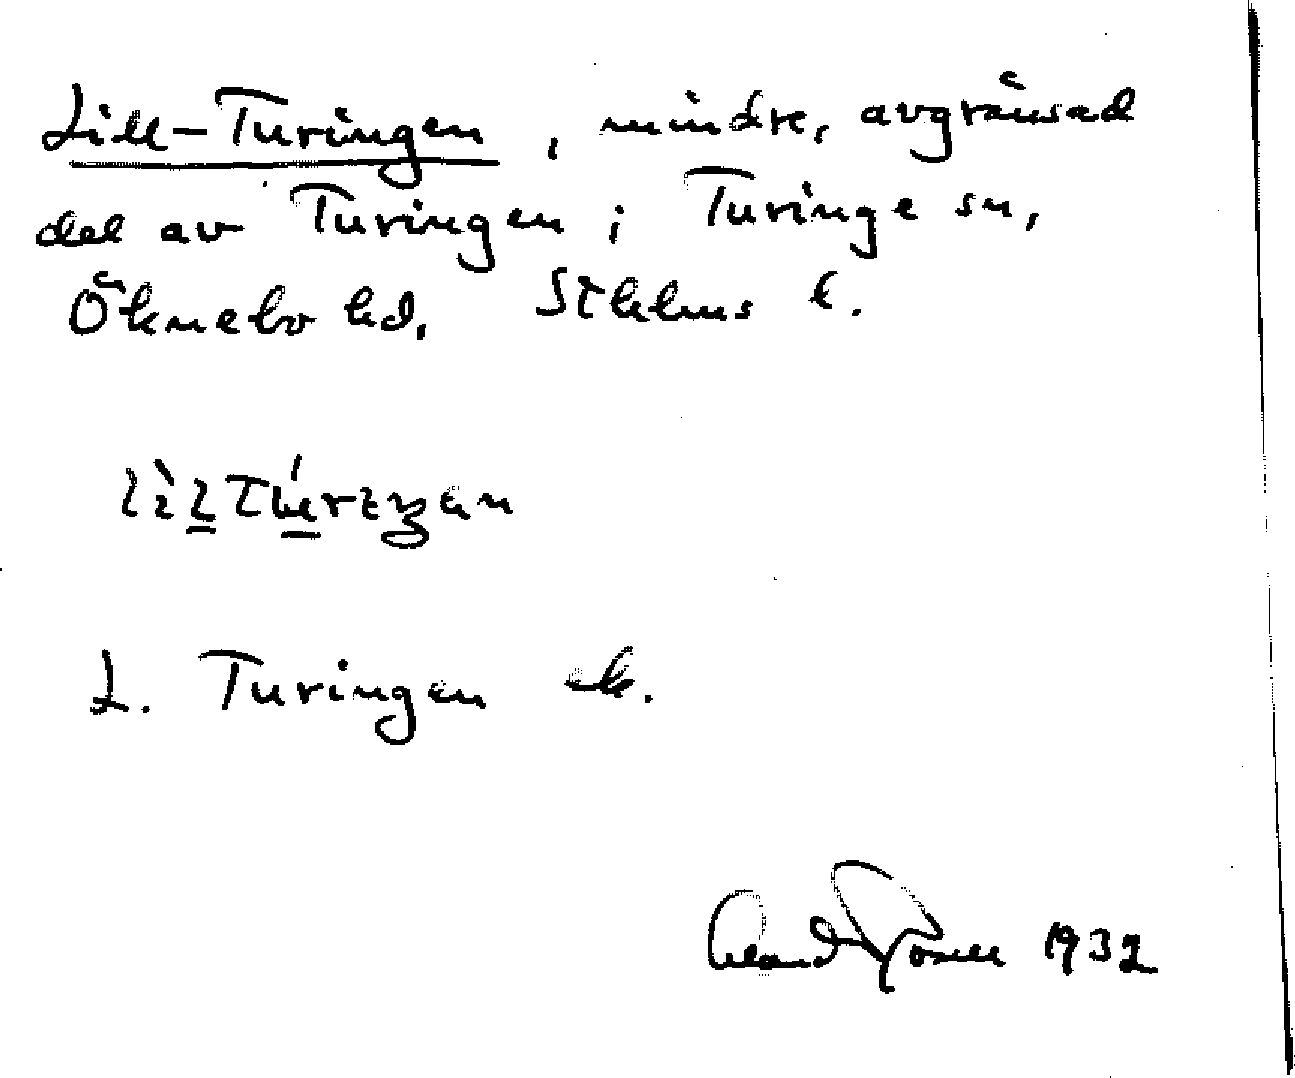 Lill-Turingen, mindre, avgränsad
del av Turingen i Turinge sn,
Öknebo hd, Sthlms l.
L. Turingen ek.
1932